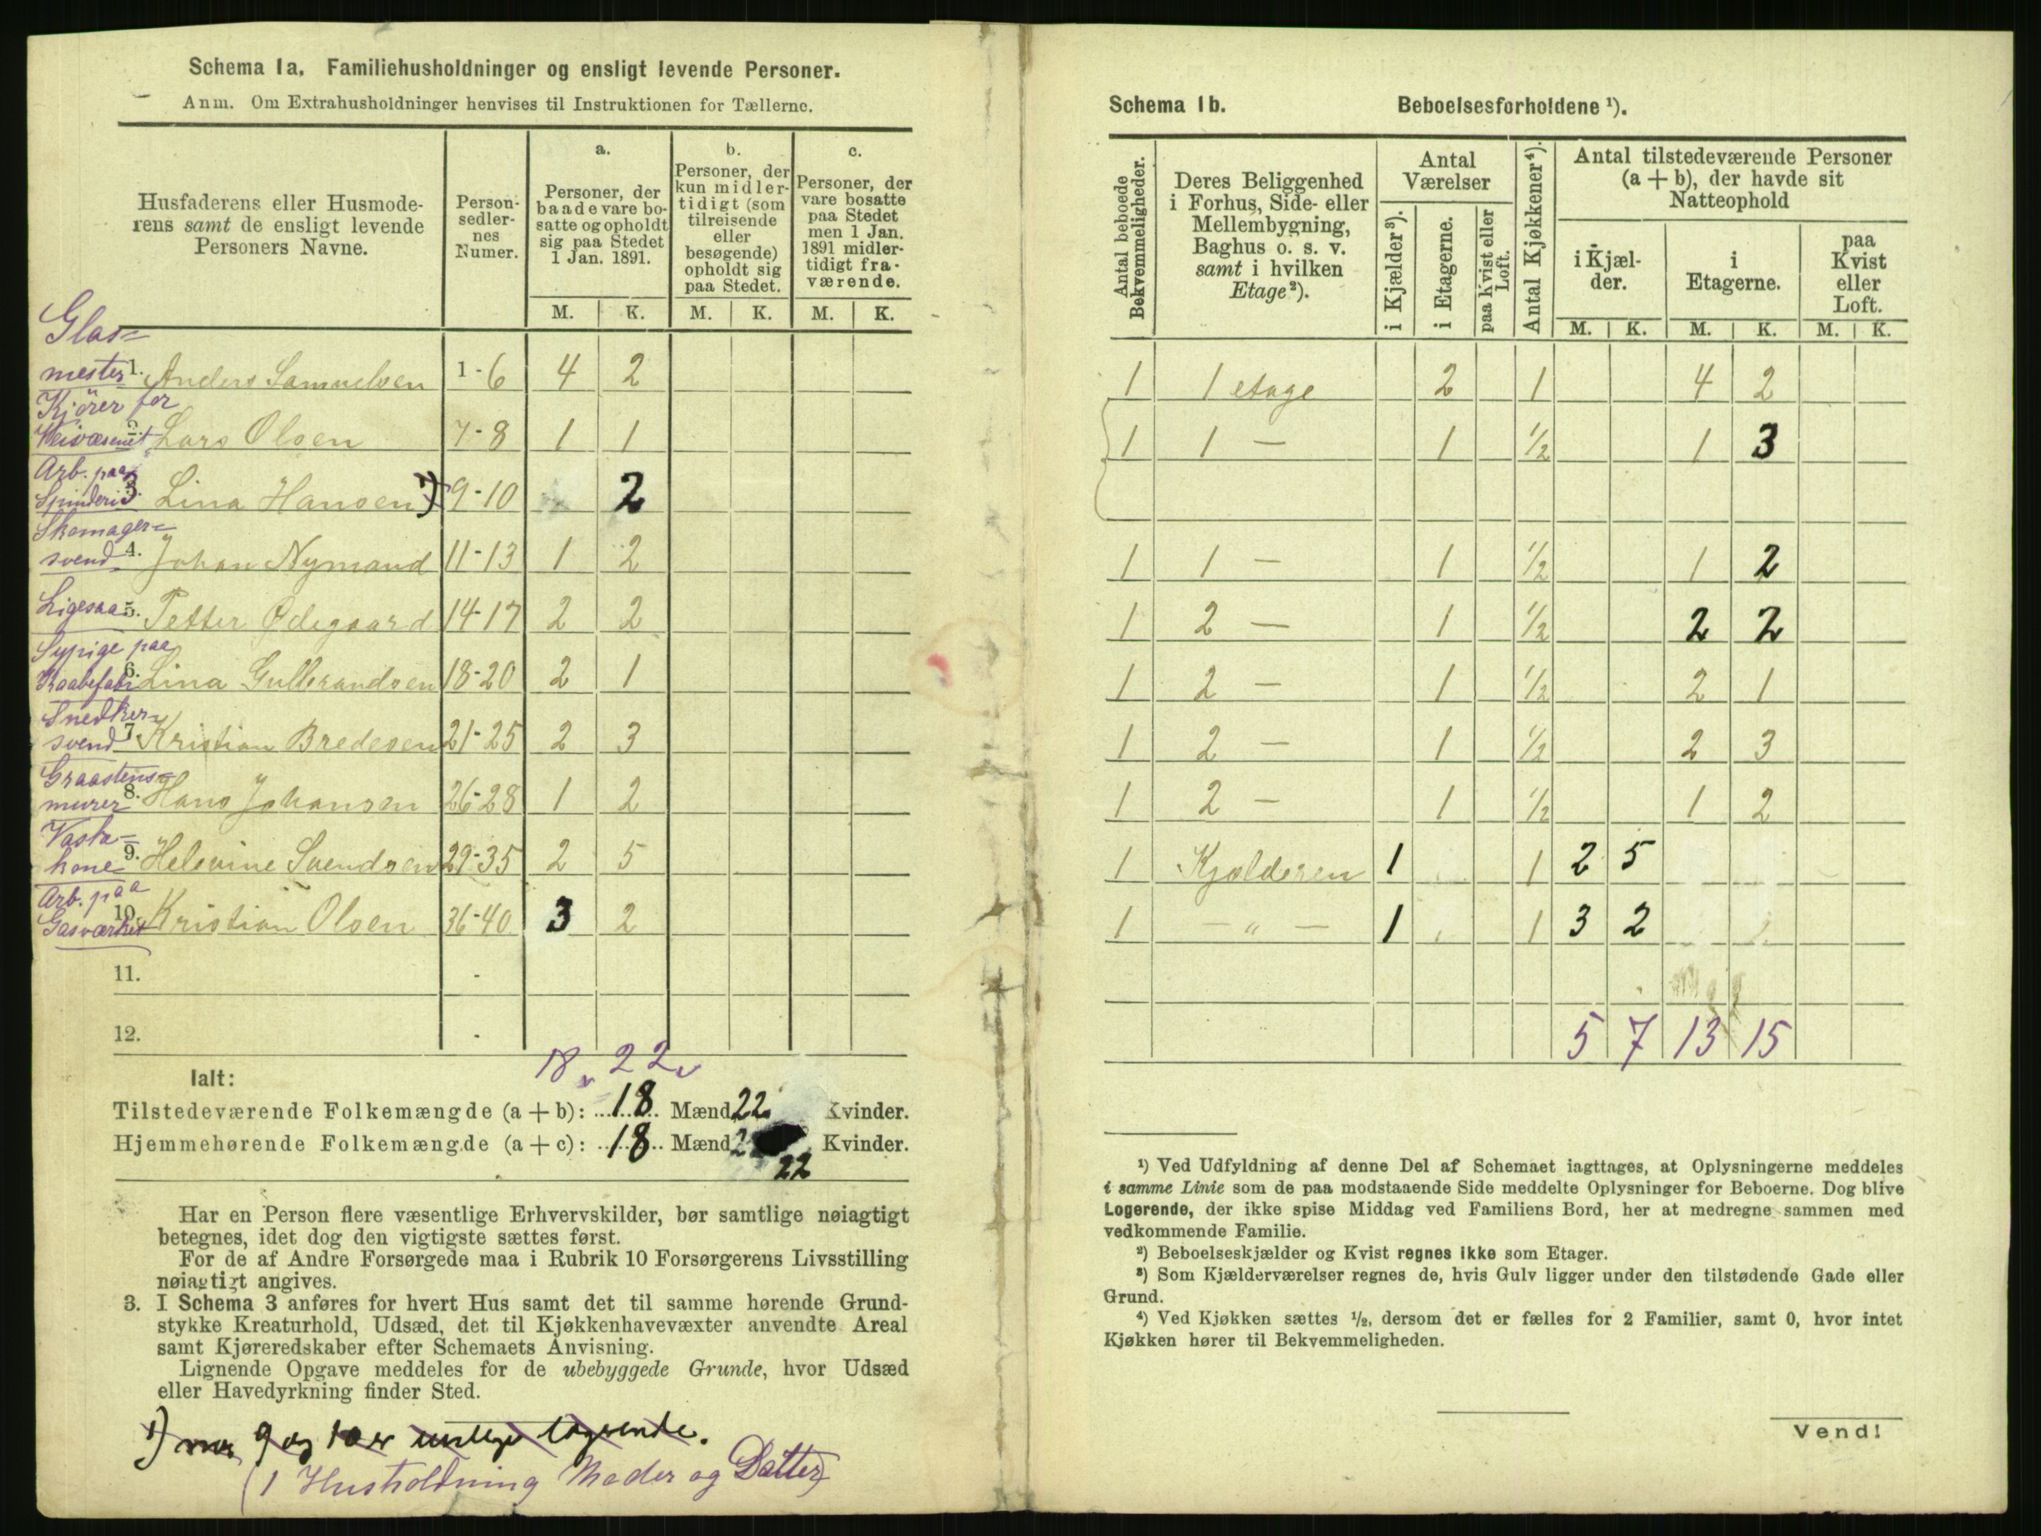 Schema 1a. Familiehusholdninger og ensligt levende Personer.
Anm. Om Extrahusholdninger henvises til Instruktionen for Tællerne.
Husfaderens eller Husmoderens samt de ensligt levende Personers Navne. | Personsedlernes Numer. | a. Personer, der baade vare bosatte og opholdt sig paa Stedet 1 Jan. 1891. | b. Personer, der kun midlertidigt (som tilreisende eller besøgende) opholdt sig paa Stedet. | c. Personer, der vare bosatte paa Stedet men 1 Jan. 1891 midlertidigt fraværende.
M. K. M. K. M. K.
Glasmester 1. Anders Samuelsen 1-6 4 2
Kjörer for Veivæsenet 2. Lars Olsen 7-8 1 1
Arb. paa Spinderi 3. Lina Hansen 1) 9-10 2
Skomagersvend 4. Johan Nymand 11-13 1 2
Ligesaa 5. Petter Ødegaard 14-17 2 2
Sypige paa Kaabefabr. 6. Lina Gulbrandsen 18-20 2 1
Snedkersvend 7. Kristian Bredesen 21-25 2 3
Graastensmurer 8. Hans Johansen 26-28 1 2
Vaskekone 9. Helevine Svendsen 29-35 2 5
Arb. paa Gasværket 10. Kristian Olsen 36-40 3 2
11. -
12. -
18 22
Ialt:
Tilstedeværende Folkemængde (a + b): 18 Mænd 22 Kvinder.
Hjemmehørende Folkemængde (a + c): 18 Mænd 22 Kvinder.
Har en Person flere væsentlige Erhvervskilder, bør samtlige nøiagtigt
betegnes, idet dog den vigtigste sættes først.
For de af Andre Forsørgede maa i Rubrik 10 Forsørgerens Livsstilling
nøiagtigt angives.
3. I Schema 3 anføres for hvert Hus samt det til samme hørende Grund-
stykke Kreaturhold, Udsæd, det til Kjøkkenhavevæxter anvendte Areal
samt Kjøreredskaber efter Schemaets Anvisning.
Lignende Opgave meddeles for de ubebyggede Grunde, hvor Udsæd
eller Havedyrkning finder Sted.
1) 9 og 10 er enslige logerende.
(1 Husholdning Moder og Datter)
Schema 1b. Beboelsesforholdene ¹).
Antal beboede Bekvemmeligheder. | Deres Beliggenhed i Forhus, Side- eller Mellembygning, Baghus o. s. v. samt i hvilken Etage²). | Antal Værelser | i Kjælder³). | i Etagerne. | paa Kvist eller Loft. | Antal Kjøkkener⁴). | Antal tilstedeværende Personer (a + b), der havde sit Natteophold | i Kjælder. | i Etagerne. | paa Kvist eller Loft.
M. K. M. K. M. K.
1 1 etage 2 1 4 2
1 1 — 1 ½ 1 3
1 1 — 1 ½ 1 2
1 2 — 1 ½ 2 2
1 2 — 1 ½ 2 1
1 2 — 1 ½ 2 3
1 2 — 1 ½ 1 2
1 Kjælderen 1 1 2 5
1 — „ — 1 1 3 2
5 7 13 15
¹) Ved Udfyldning af denne Del af Schemaet iagttages, at Oplysningerne meddeles
i samme Linie som de paa modstaaende Side meddelte Oplysninger for Beboerne. Dog blive
Logerende, der ikke spise Middag ved Familiens Bord, her at medregne sammen med
vedkommende Familie.
²) Beboelseskjælder og Kvist regnes ikke som Etager.
³) Som Kjælderværelser regnes de, hvis Gulv ligger under den tilstødende Gade eller
Grund.
⁴) Ved Kjøkken sættes ½, dersom det er fælles for 2 Familier, samt 0, hvor intet
Kjøkken hører til Bekvemmeligheden.
Vend!